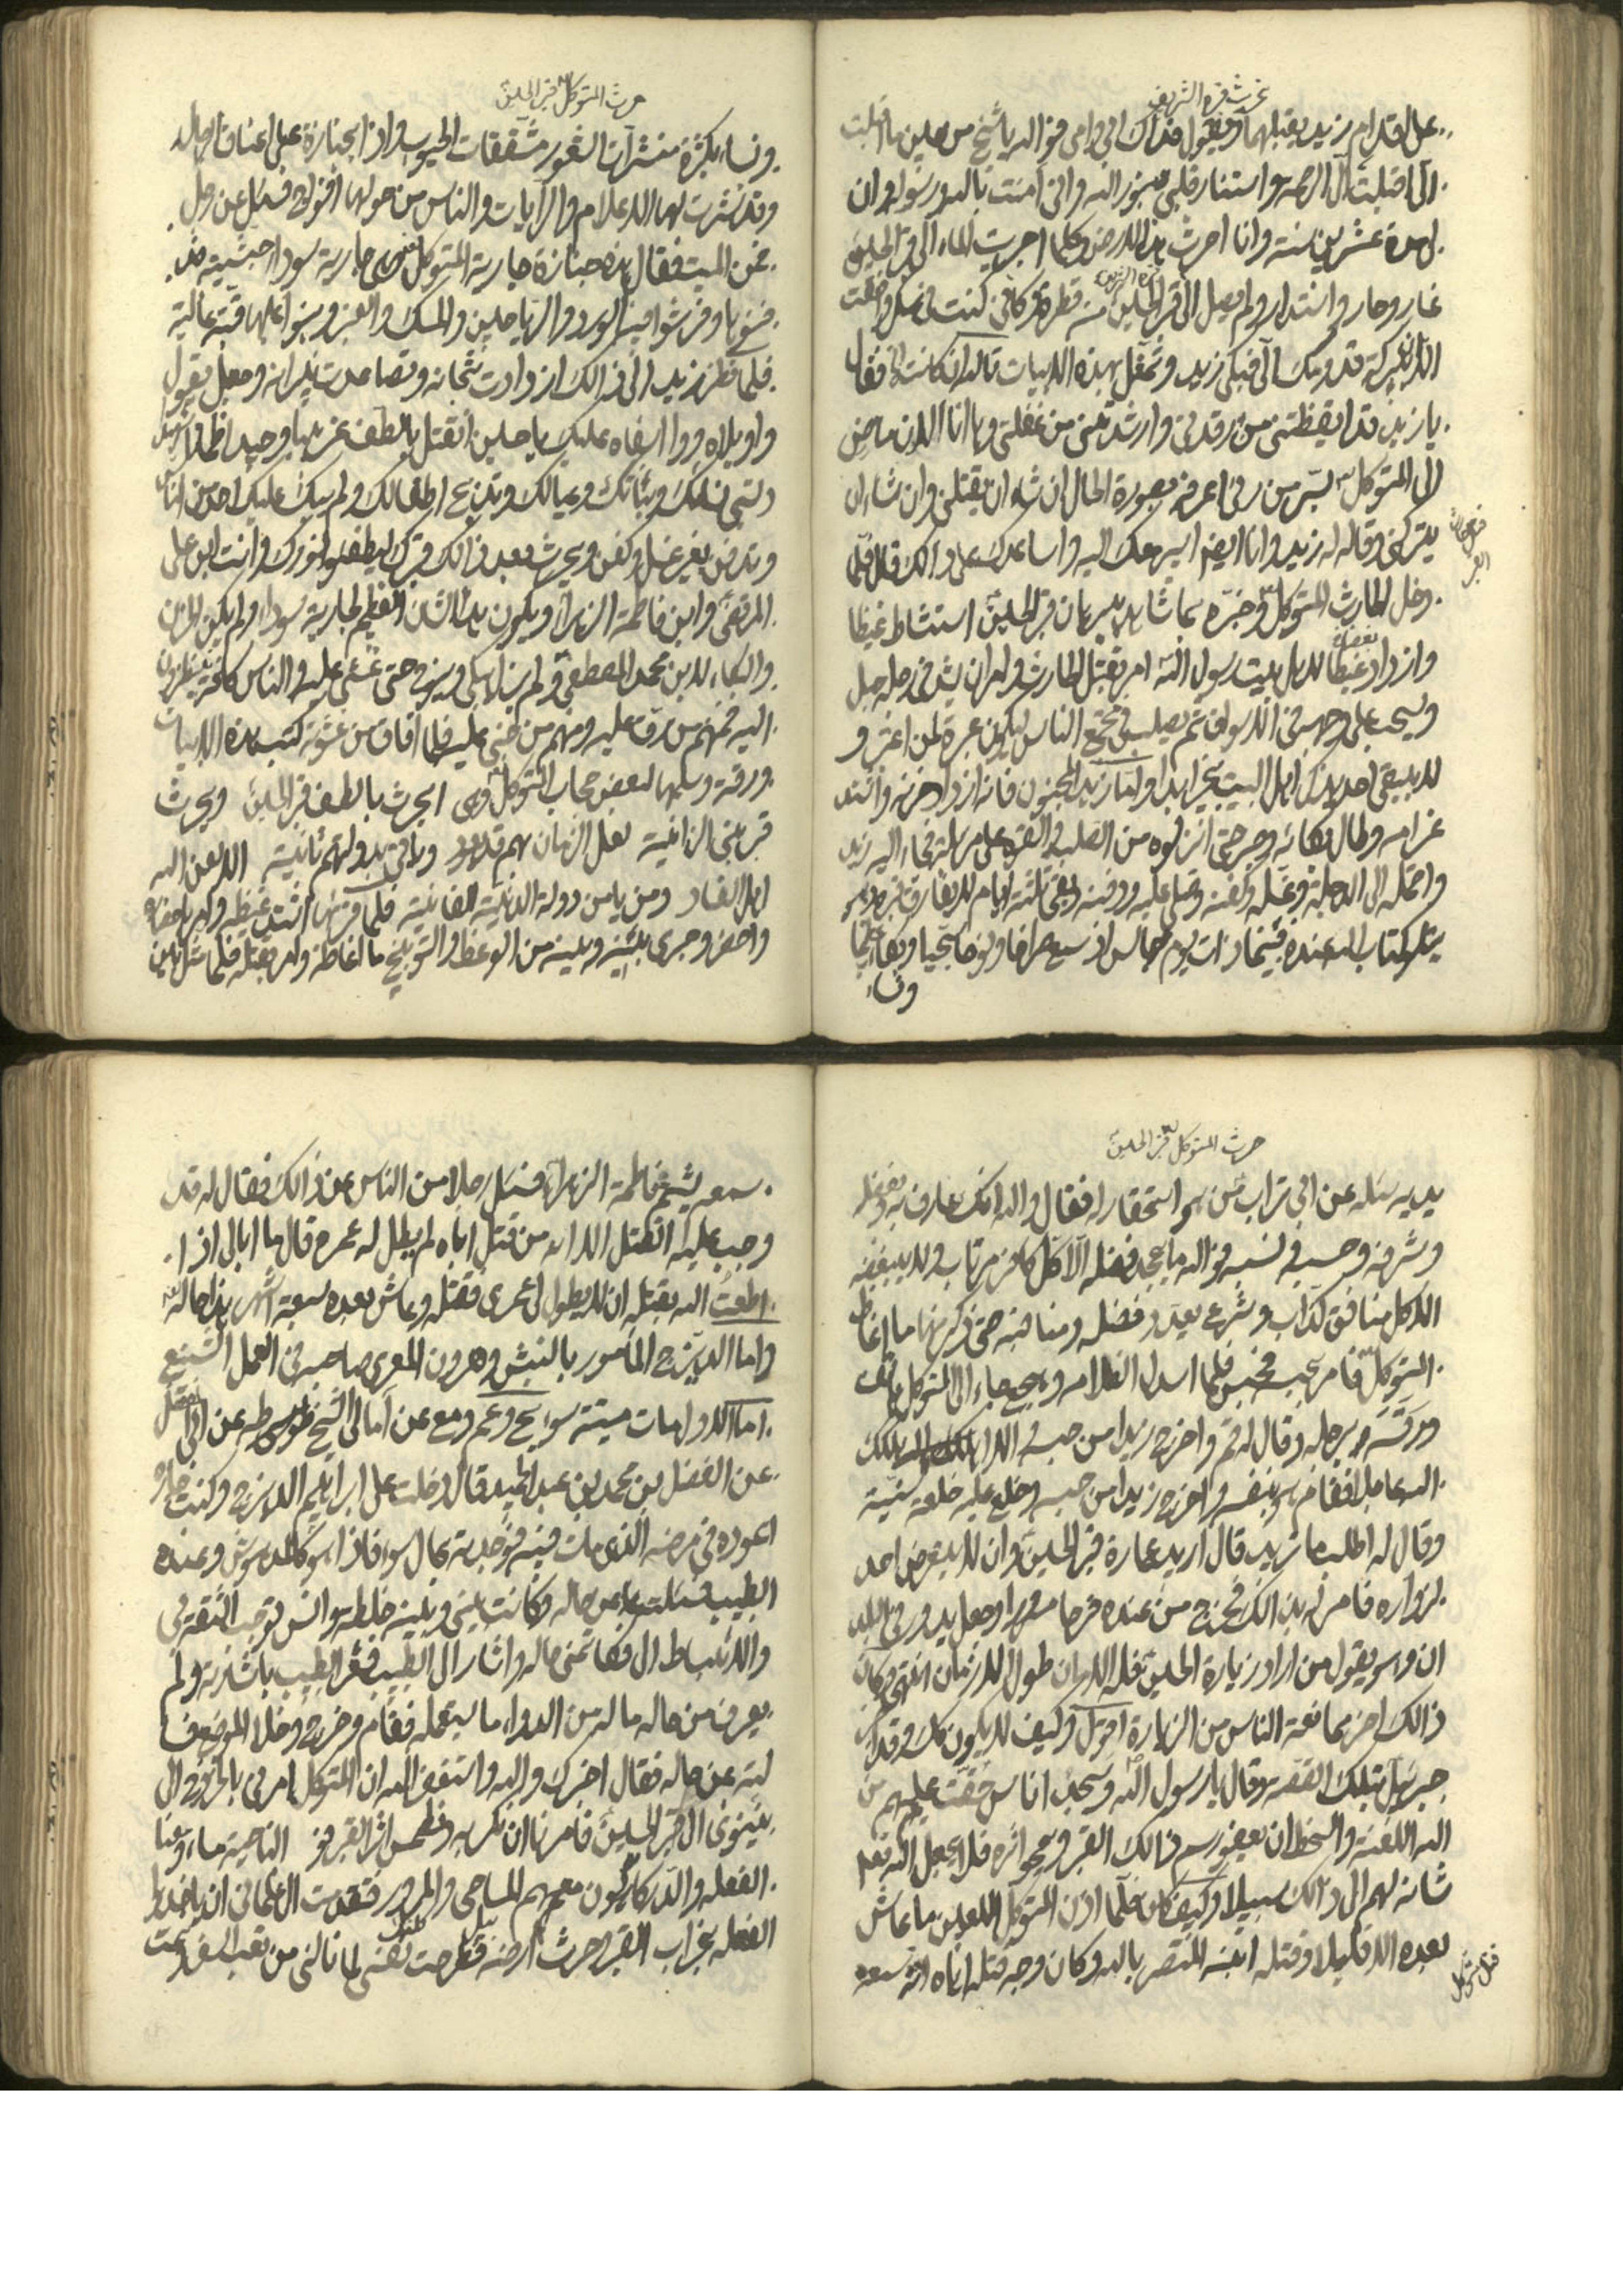 حرث قبره الشريف
على اقدام زيد يقبلهما ويقول فداك ابي وامي فوالله يا شيخ من حين ما اقبلت
الي اقبلت الي الرحمة واستنار قلبي بنور الله واني آمنت بالله ورسوله وان
لي مدة عشرين سنة وانا احرث هذه الارض وكلما اجريت الماء الى قبر الحسين
غار وحار واستدار ولم يصل الى قبر الحسين منه قطرة وكاني كنت في سكر وافقت
الان ببركة قدومك الي فبكى زيد وتمثل بهذه الابيات تالله ان كانت الخ فقال
يا زيد قد ايقظتني من رقدتي وارشدتني من غفلتي وها انا الان ماض
الى المتوكل بسر من رأى اعرفه بصورة الحال ان شاء ان يقتلني وان شاء ان
يتركني وقال له زيد وانا ايضا اسير معك اليه واساعدك على ذالك قال فلما
دخل الحارث الى المتوكل وخبره بما شاهد من برهان قبر الحسين استشاط غيظا
وازداد بغضا لاهل بيت رسول الله امر بقتل الحارث وامر ان يشد في رجله حبل
ويسحب على وجهه في الاسواق ثم يصلب في مجتمع الناس ليكون عبرة لمن اعتبر و
لا يبقى احد يذكر اهل البيت بخير ابدا واما زيد المجنون فانه ازداد حزنه واشتد
غرامه وطال بكائه وصبر حتى انزلوه من الصلب والقوه على مزبلة فجاء اليه زيد
واحتمله الى الدجلة وغسله وكفنه وصلى عليه ودفنه وبقي ثلثة ايام لا يفارق قبره وهو
يتلو كتاب الله عنده فبينما ذات يوم جالس اذ سمع صراخا ونوحا شجيا وبكاء عظيما
ونساء
حرث المتوكل قبر الحسين
ونساء بكثرة منشرات الشعور مشققات الجيوب واذا بجنازة على اعناق الرجال
وقد نشرت لها الاعلام والرايات والناس من حولها افواجا فسئل عن رجل
عن الميت فقال هذه جنازة جارية المتوكل وهي جارية سوداء حبشية
دفنوها وفرشوا فيه الورد والرياحين والمسك والعنبر وبنوا عليها قبة عالية
فلما نظر زيد الى ذالك ازدادت اشجانه وتصاعدت نيرانه وجعل يقول
واويلاه ووا اسفاه عليك يا حسين اتقتل بالطف غريبا وحيدا ظمآنا
وتسبى نسائك وبناتك وعيالك وتذبح اطفالك ولم يبك عليك احد من الناس
وتدفن بغير غسل وكفن ويحرث بعد ذالك قبرك ليطفئوا نورك وانت ابن علي
المرتضى وابن فاطمة الزهراء ويكون هذا الشان العظيم لجارية سوداء ولم يكن الحزن
والبكاء لابن محمد المصطفى ولم يزل يبكي وينوح حتى غشي عليه والناس كافة ينظرون
اليه فمنهم من رق عليه ومنهم من جنى عليه فلما افاق من غشوته كتب هذه الابيات
في ورقة وسلمها لبعض حجاب المتوكل وهي ايحرث بالطف قبر الحسين ويحرث
قبر بني الزانية لعل الزمان بهم قد يعود وياتي بدولتهم ثانية الا لعن الله
اهل الفساد ومن يامن دولة الدنية الفانية فلما قرئها اشتد غيظه وامر باحضاره
واحضر وجرى بينه وبينه من الوعظ والتوبيخ ما اغاظه وامر بقتله فلما مثل بين
حرث المتوكل قبر الحسين
يديه سئله عن ابي تراب من هو استحقارا له فقال والله انك عارف به وبفضله
وشرفه وحسبه ونسبه فوالله ما يجحد فضله الا كل كافر مرتاب ولا يبغضه
الا كل منافق كذاب وشرع يعدد فضله ومناقبه حتى ذكر منها ما اغاظ
المتوكل فامر بحبسه فحبس فلما اسدل الظلام وهجع جاء الى المتوكل هاتف
ورفسه برجله وقال له قم واخرج زيدا من حبسه والا اهلكك
الله عاجلا فقام هو بنفسه واخرج زيدا من حبسه وخلع عليه خلعة سنية
وقال له اطلب ما تريد قال اريد عمارة قبر الحسين وان لا يتعرض احد
لزواره فامر له بذالك فخرج من عنده فرحا مسرورا وجعل يدور في البلد
ان وهو يقول من اراد زيارة الحسين فله الامان طول الازمان انتهى وكان
ذالك اخر ممانعة الناس من الزيارة اقول وكيف لا يكون كك وقد اخبر
جبرئيل بتلك القصة وقال يا رسول الله وسيجد اناس حقت عليهم من
الله اللعنة والسخط ان يعفو رسم ذالك القبر ويمحو اثره فلا يجعل الله تعا
شانه لهم الى ذالك سبيلا وكيف كان فلما اذن المتوكل اللعين ما عاش
بعده الا قليلا وقتله ابنه المنتصر بالله وكان وجه قتله اباه انه سمعه
قتل متوكل
سمعه يشتم فاطمة الزهراء فسئل رجلا من الناس عن ذالك فقال له قد
وجب عليه القتل الا انه من قتل اباه لم يطل له عمره قال ما ابالي اذا
اطعت الله بقتله ان لا يطول لي عمري فقتله وعاش بعده سبعة اشهر هذا حاله
واما الديزج المأمور بالنبش وهرون المعري صاحبه في العمل الشنيع
اما الاول مات ميتة سوء عن امالي الشيخ طوسي طه عن ابي المفضل
عن الفضل بن محمد بن عبد الحميد قال دخلت على ابراهيم الديزج وكنت جاره
اعوده في مرضه الذي مات فيه فوجدته بحال سوء فاذا هو كالمدهوش وعنده
الطبيب فسئلته عن حاله وكانت بيني وبينه خلطة وانس توجب الثقة بي
والانبساط الى فكاتمني حاله واشار الى الطبيب فشعر الطبيب باشارته ولم
يعرف من حاله ما له من الدواء ما يستعمله فقام وخرج وخلا الموضع فسا
لته عن حاله فقال اخبرك والله واستغفر الله ان المتوكل امرني بالخروج الى
نينوى الى قبر الحسين فامرنا ان نكربه ونطمس اثر القبر فو الناحية مساء ومعنا
الفعله والدركاريون معهم المساحي والمرور فتقدمت الى غلماني ان ياخذوا
الفعله بخراب القبر وحرث ارضه فطرحت نفسي لما نالني من تعب السفر ونمت